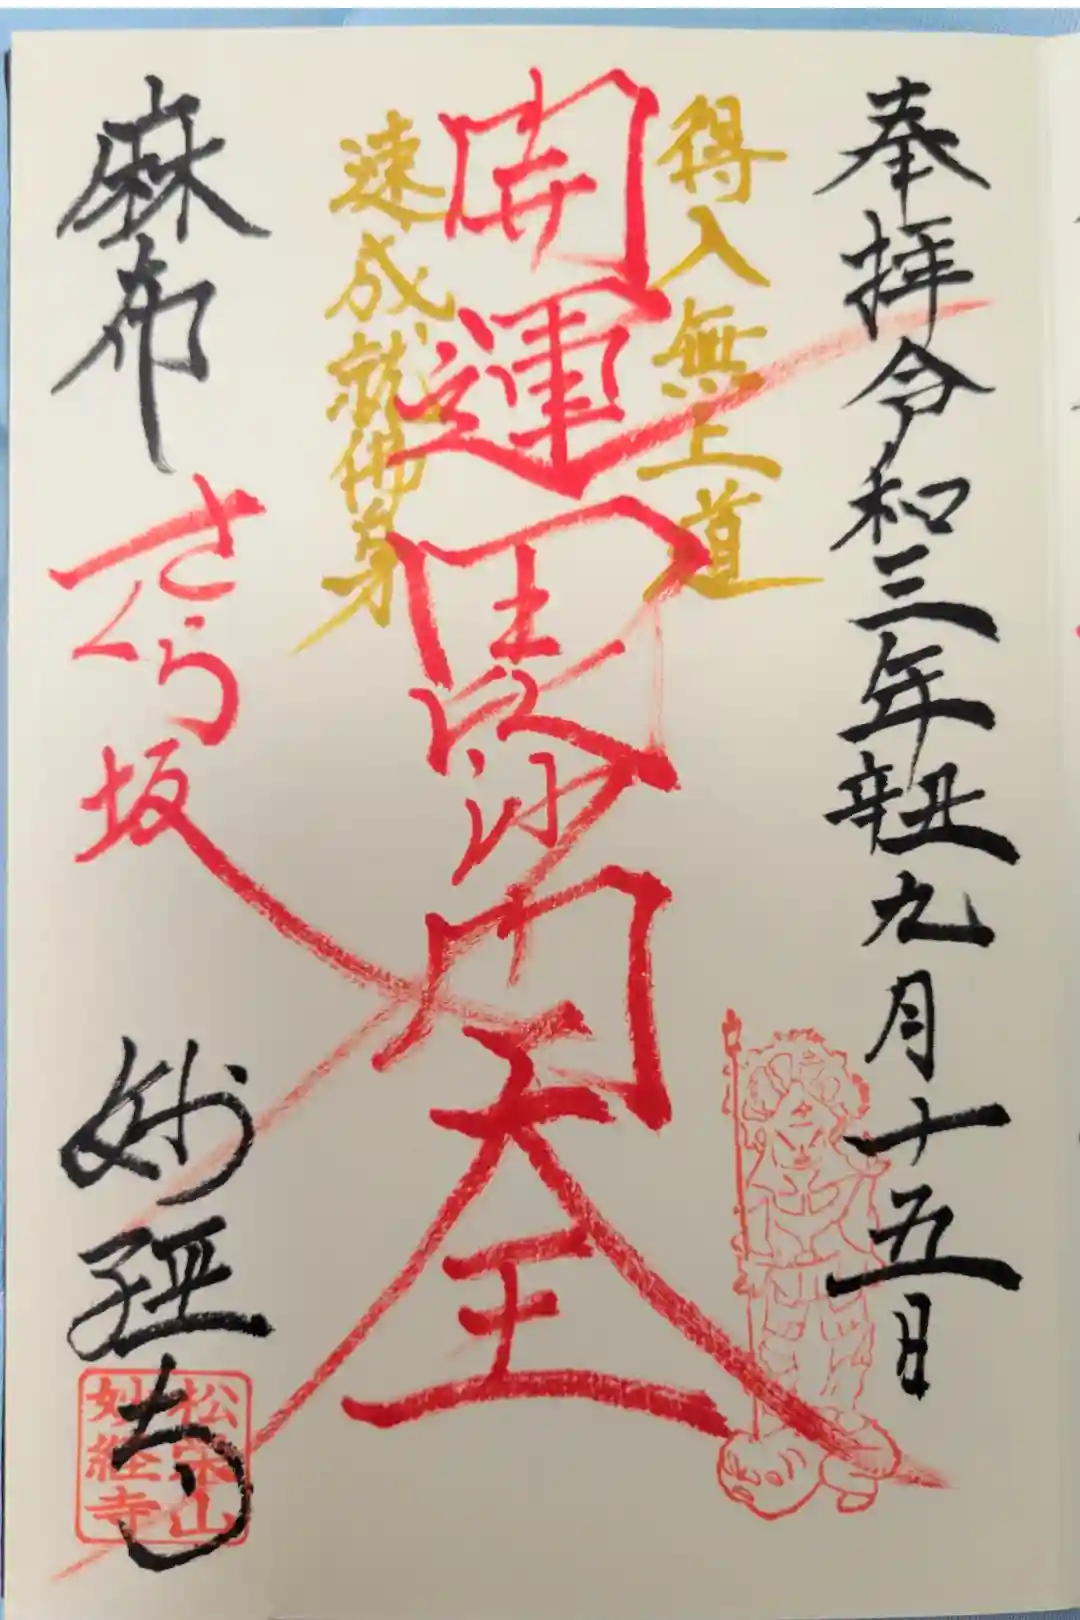 奉拝令和三年辛丑九月十五日
得入無上道
開運毘沙門天王
速成就佛身
麻布
さくら坂
妙経寺
松栄山
妙経寺